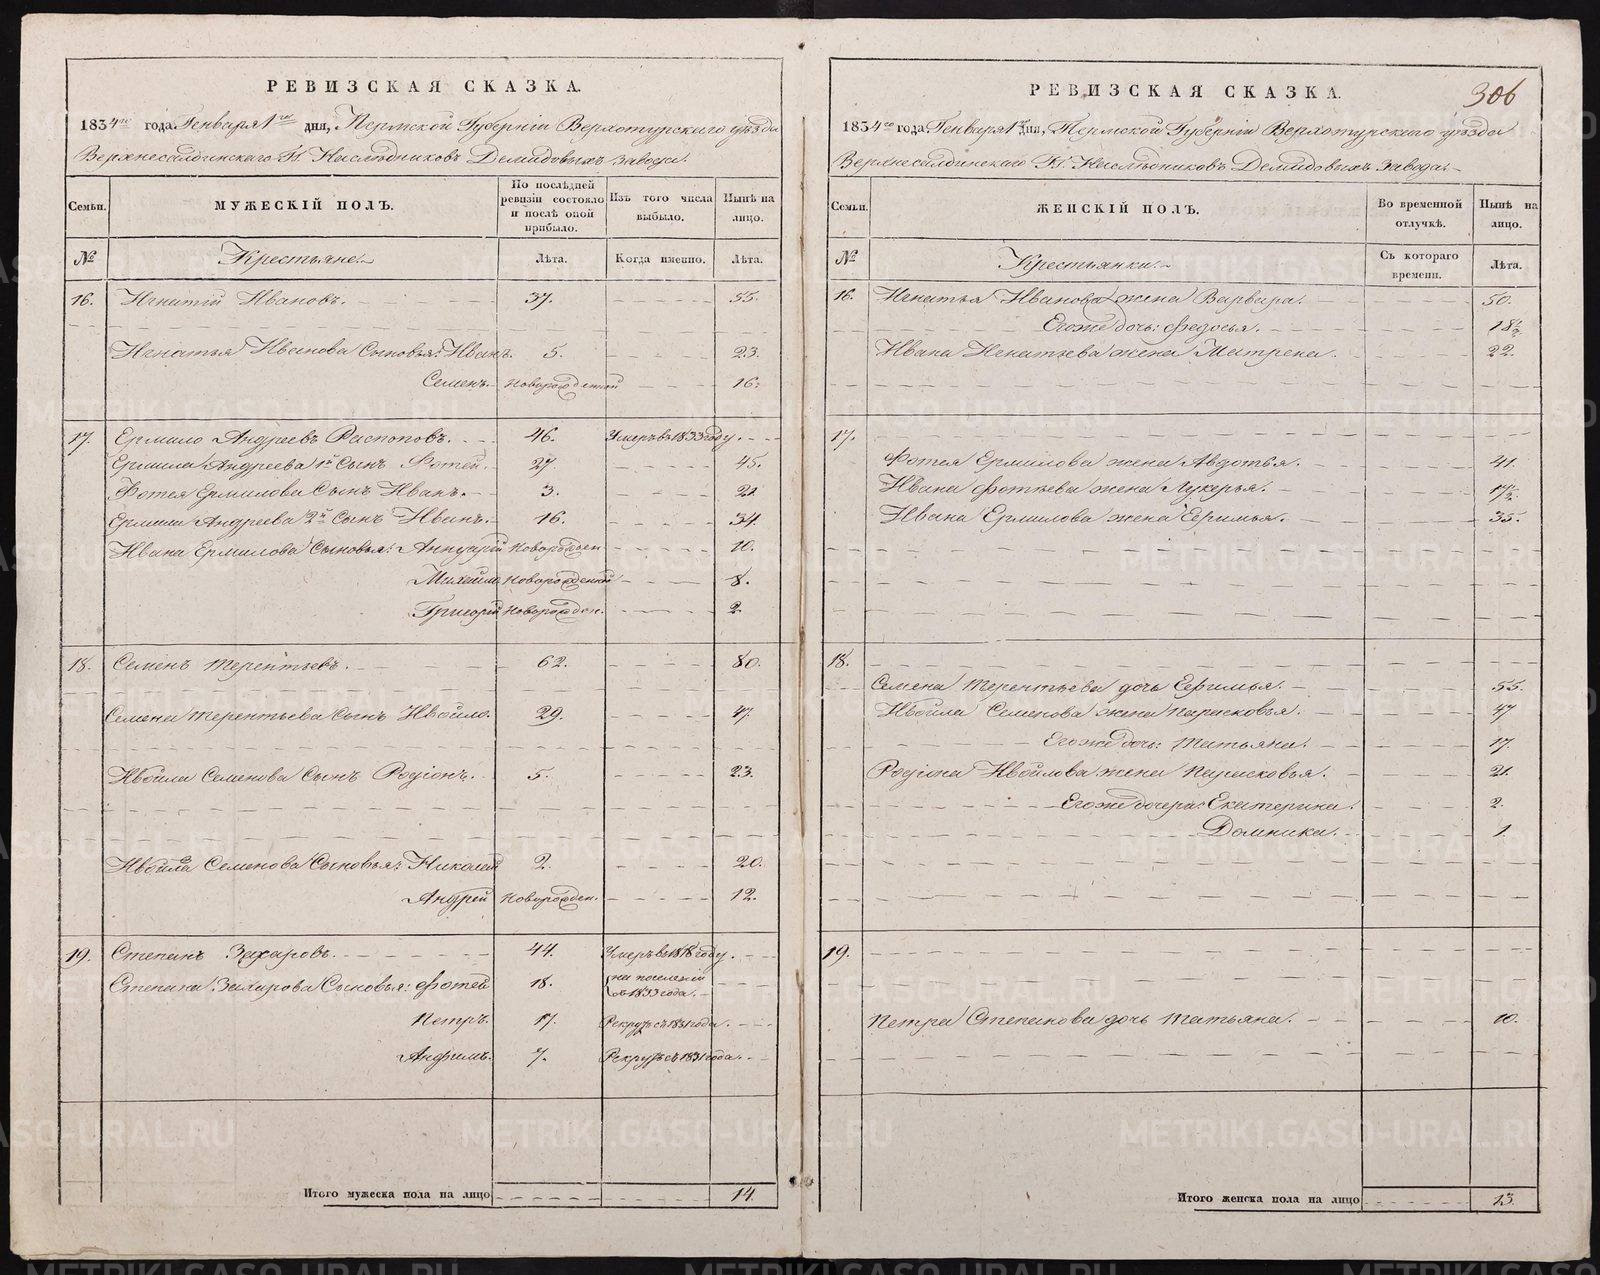 РЕВИЗСКАЯ СКАЗКА.
1834го года Генваря 1го дня, Пермской Губерніи Верхотурскаго уѣзда
Верхнесалдинскаго Гг. Наслѣдниковъ Демидовыхъ завода.
Семьи.
МУЖЕСКІЙ ПОЛЪ.
По послѣдней ревизіи состояло и послѣ оной прибыло.
Изъ того числа выбыло.
Нынѣ на лицо.
№
Крестьяне.
Лѣта.
Когда именно.
Лѣта.
16. Игнатій Ивановъ. 37. 55.
Игнатья Иванова Сыновья: Иванъ. 5. 23.
Семенъ. новорожденной 16.
17. Ермило Андреевъ Распоповъ. 46. Умеръ въ 1833 году.
Ермила Андреева 1й Сынъ Фотей. 27. 45.
Фотея Ермилова Сынъ Иванъ. 3. 21
Ермила Андреева 2й Сынъ Иванъ. 16. 34.
Ивана Ермилова Сыновья: Аннуарій новорожден 10.
Михайло новорожденной 8.
Григорій новорожден. 2.
18. Семенъ Терентьевъ. 62. 80.
Семена Терентьева Сынъ Ивойло. 29. 47.
Ивойла Семенова Сынъ Родіонъ. 5. 23.
Ивойла Семенова Сыновья: Николай 2. 20.
Андрей новорожден. 12.
19. Степанъ Захаровъ. 44. Умеръ въ 1818 году.
Степана Захарова Сыновья: Фотей 18. на поселеніи съ 1833 года.
Петръ. 17. Рекрутъ съ 1831 года.
Анфимъ. 7. Рекрутъ съ 1831 года.
Итого мужеска пола на лицо 14.
РЕВИЗСКАЯ СКАЗКА.
306
1834го года Генваря 1го дня, Пермской Губерніи Верхотурскаго уѣзда
Верхнесалдинскаго Гг. Наслѣдниковъ Демидовыхъ завода.
Семьи.
ЖЕНСКІЙ ПОЛЪ.
Во временной отлучкѣ.
Нынѣ на лицо.
№
Крестьянки.
Съ котораго времени.
Лѣта.
16. Игнатья Иванова жена Варвара. 50.
Его же дочь: Федосья. 18½
Ивана Игнатьева жена Матрена. 22.
17.
Фотея Ермилова жена Авдотья. 41.
Ивана Фотѣева жена Лукерья. 17½
Ивана Ермилова жена Ефимья. 35.
18.
Семена Терентьева дочь Ефимья. 55.
Ивойла Семенова жена Парасковья. 47
Его же дочь: Татьяна. 17.
Родіона Ивойлова жена Парасковья. 21.
Его же дочери: Екатерина. 2.
Домника. 1
19.
Петра Степанова дочь Татьяна. 10.
Итого женска пола на лицо 13.
METRIKI.GASO-URAL.RU